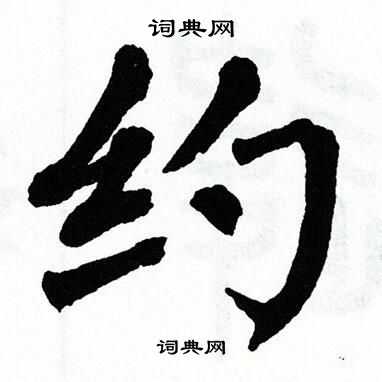 词典网
约
词典网